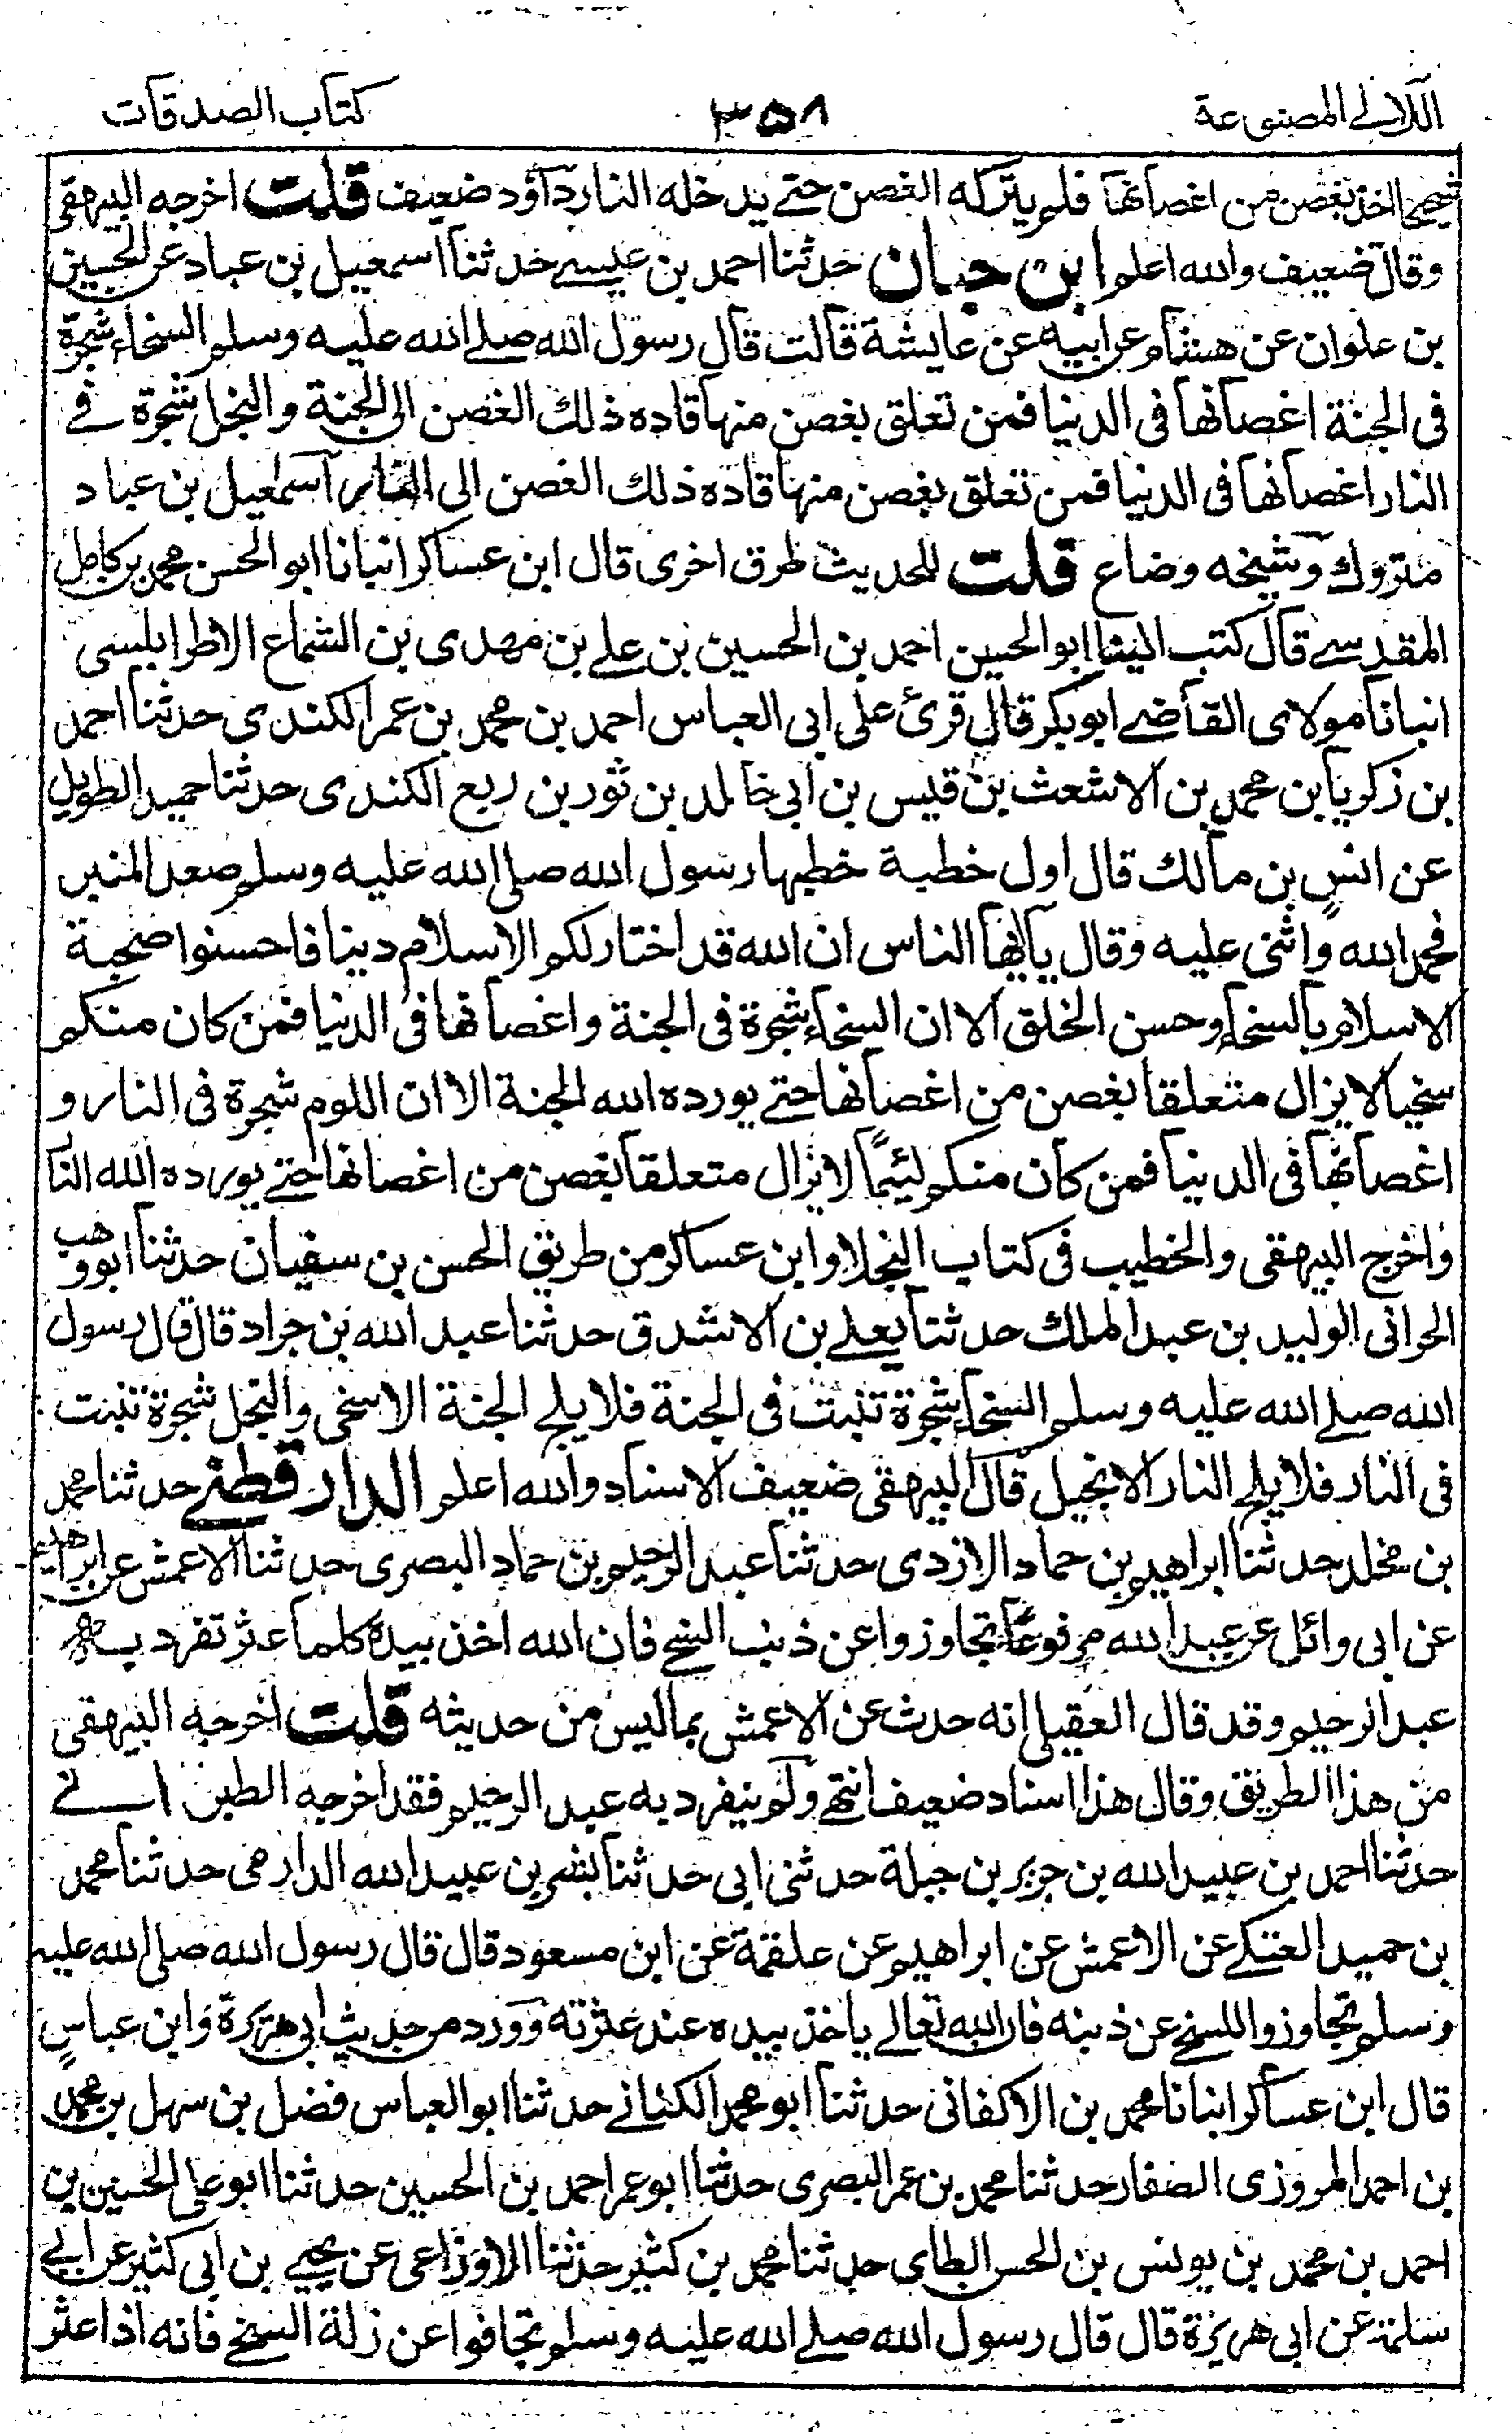 اللآلی المصنوعة
۳۵۸
كتاب الصدقات
شحيحا اخذ بغصن من اغصانها فلم يتركه الغصن حتے يدخله النار داؤد ضعيف قلت اخرجه البيهقی
وقال ضعيف والله اعلم ابن حبان حدثنا احمد بن عيسے حدثنا اسمعيل بن عباد عن الحسين
بن علوان عن هشام عن ابيه عن عايشة قالت قال رسول الله صلے الله عليه وسلم السخاء شجرة
فی الجنة اغصانها فی الدنيا فمن تعلق بغصن منها قاده ذلك الغصن الی الجنة والبخل شجرة فے
النار اغصانها فی الدنيا فمن تعلق بغصن منها قاده ذلك الغصن الی النار اسمعيل بن عباد
متروك وشيخه وضاع قلت للحديث طرق اخری قال ابن عساكر انبانا ابو الحسن محمد بن كامل
المقدسے قال كتب الينا ابو الحسين احمد بن الحسين بن علے بن مهدی بن الشماع الاطرابلسی
انبانا مولای القاضے ابو بكر قال قرئ علی ابی العباس احمد بن محمد بن عمر الكندی حدثنا احمد
بن زكريا بن محمد بن الاشعث بن قيس بن ابی خالد بن ثور بن ربع الكندی حدثنا حميد الطويل
عن انس بن مالك قال اول خطبة خطبها رسول الله صلی الله عليه وسلم صعد المنبر
فحمد الله واثنی عليه وقال يايها الناس ان الله قد اختار لكم الاسلام دينا فاحسنوا صحبة
الاسلام بالسخاء وحسن الخلق الا ان السخاء شجرة فی الجنة واغصانها فی الدنيا فمن كان منكم
سخيا لا يزال متعلقا بغصن من اغصانها حتے يورده الله الجنة الا ان اللوم شجرة فی النار و
اغصانها فی الدنيا فمن كان منكم لئيمًا لا يزال متعلقا بغصن من اغصانها حتے يورده الله النار
واخرج البيهقی والخطيب فی كتاب البخلاء وابن عساكر من طريق الحسن بن سفيان حدثنا ابو وهب
الحرانی الوليد بن عبد الملك حدثنا يعلے بن الاشدق حدثنا عبد الله بن جراد قال قال رسول
الله صلے الله عليه وسلم السخاء شجرة تنبت فی الجنة فلا يلج الجنة الا سخی والبخل شجرة تنبت
فی النار فلا يلج النار الا بخيل قال البيهقی ضعيف الاسناد والله اعلم الدارقطنے حدثنا محمد
بن مخلد حدثنا ابراهيم بن حماد الازدی حدثنا عبد الرحيم بن حماد البصری حدثنا الاعمش عن ابراهيم
عن ابی وائل عن عبد الله مرفوعًا تجاوزوا عن ذنب السخے فان الله اخذ بيده كلما عثر تفرد به
عبد الرحيم وقد قال العقيلی انه حدث عن الاعمش بما ليس من حديثه قلت اخرجه البيهقی
من هذا الطريق وقال هذا اسناد ضعيف انتهے ولم ينفرد به عبد الرحيم فقد اخرجه الطبرانے
حدثنا احمد بن عبيد الله بن جرير بن جبلة حدثنی ابی حدثنا بشر بن عبيد الله الدارمی حدثنا محمد
بن حميد العتكے عن الاعمش عن ابراهيم عن علقمة عن ابن مسعود قال قال رسول الله صلی الله عليه
وسلم تجاوزوا للسخے عن ذنبه فان الله تعالے ياخذ بيده عند عثرته وورد من حديث ابی هريرة وابن عباس
قال ابن عساكر انبانا محمد بن الاكفانی حدثنا ابو محمد الكتانے حدثنا ابو العباس فضل بن سهل بن محمد
بن احمد المروزی الصفار حدثنا محمد بن عمر البصری حدثنا ابو عمر احمد بن الحسين حدثنا ابو علی الحسين بن
احمد بن محمد بن يونس بن الحسن الطای حدثنا محمد بن كثير حدثنا الاوزاعی عن يحيے بن ابی كثير عن ابے
سلمة عن ابی هريرة قال قال رسول الله صلے الله عليه وسلم تجافوا عن زلة السخے فانه اذا عثر